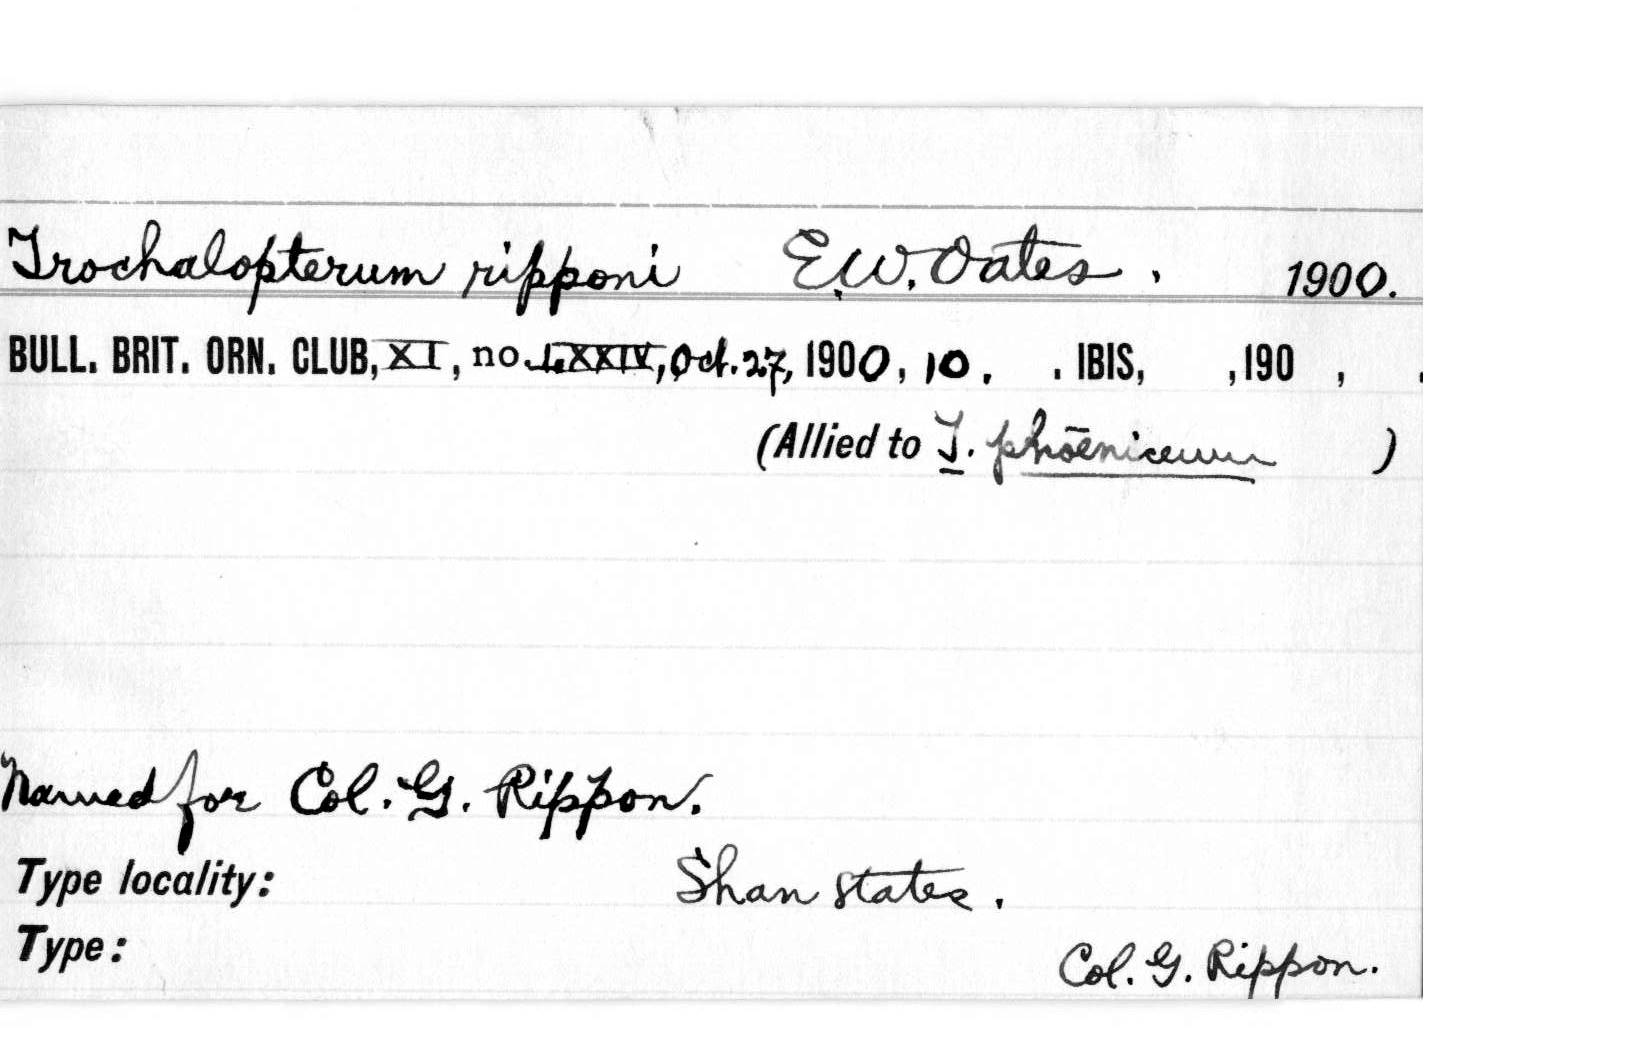 Trochalopterum ripponi E.W. Oates. 1900.
BULL. BRIT. ORN. CLUB, XI, no. LXXIV, Oct. 27, 1900, 10. . IBIS, ,190 , .
(Allied to T. phœniceum )
Named for Col. G. Rippon.
Type locality: Shan States.
Type:
Col. G. Rippon.